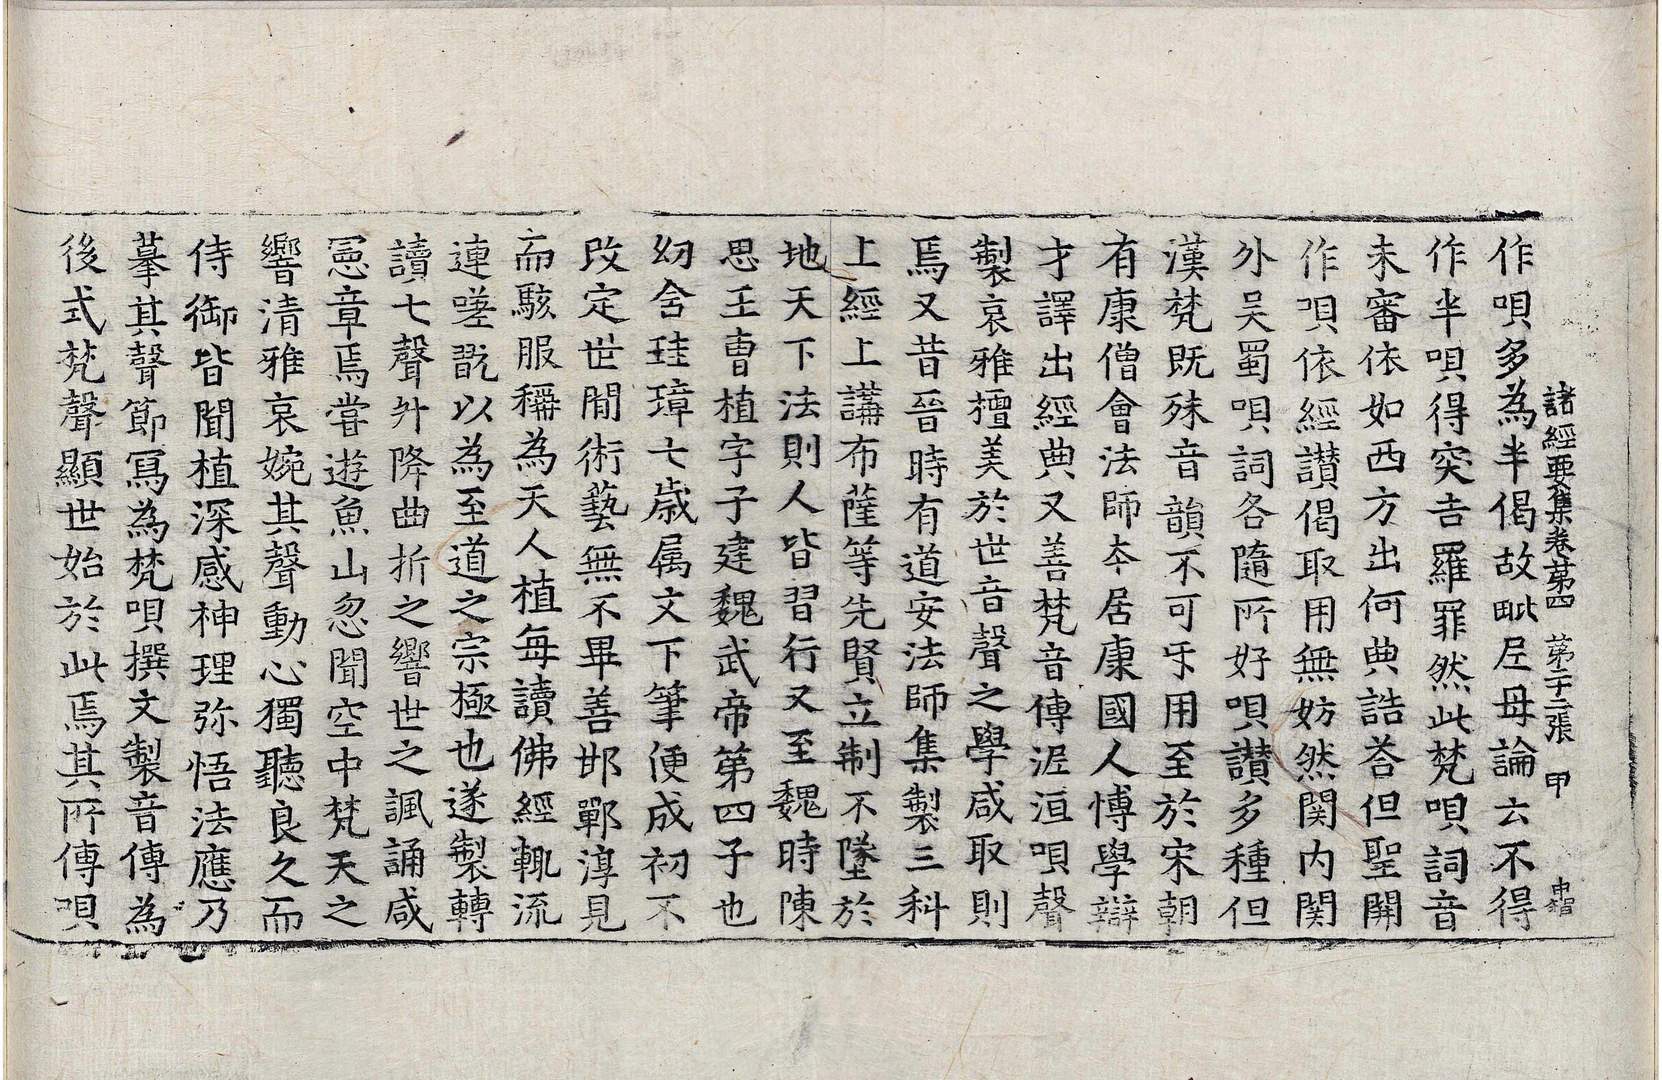 諸經要集卷苐四 苐二十二張 甲 申智
作唄多為半偈故毗尼母論云不得
作半唄得突吉羅罪然此梵唄詞音
未審依如西方出何典誥荅但聖開
作唄依經讃偈取用無妨然関内関
外吴蜀唄詞各隨所好唄讃多種但
漢梵既殊音韻不可㸦用至於宋朝
有康僧會法師夲居康國人博學辯
才譯出經典又善梵音傳泥洹唄聲
製哀雅擅美於世音聲之學咸取則
焉又昔晉時有道安法師集製三科
上經上講布薩等先賢立制不墜於
地天下法則人皆習行又至魏時陳
思王曹植字子建魏武帝第四子也
幼含珪璋七歲属文下筆便成初不
改定世間術藝無不畢善邯鄲淳見
而駭服稱為天人植毎讀佛經輒流
連嗟翫以為至道之宗極也遂製轉
讀七聲升降曲折之響世之諷誦咸
憲章焉嘗遊魚山忽聞空中梵天之
響清雅哀婉其聲動心獨聽良久而
侍御皆聞植深感神理弥悟法應乃
摹其聲節寫為梵唄撰文製音傳為
後式梵聲顯世始於此焉其所傳唄